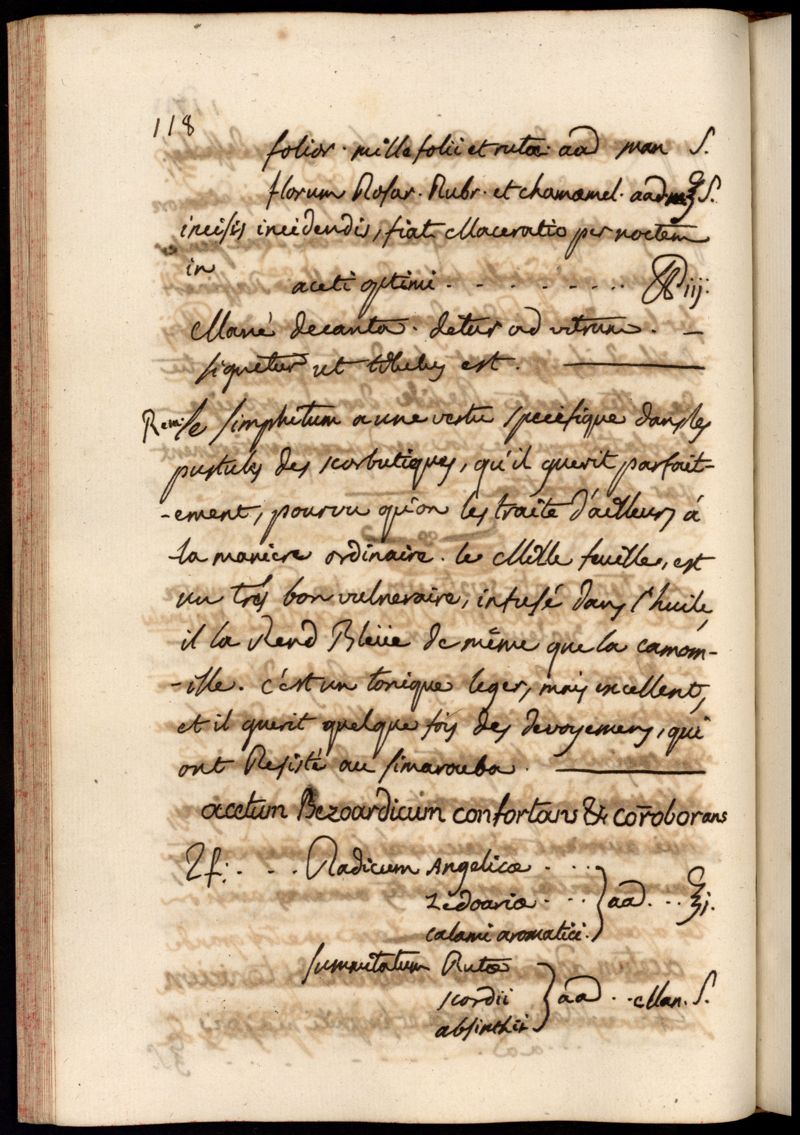 118
folior. millefolii et rutæ. aad man S.
florum Rosar. Rubr. et chamæmel. aad ℥ S.
incisis incidendis, fiat Maceratio per noctem
in
aceti optimi . - - - . . . . ℔ iij.
Mané decanta. detur ad vitrum. –
signetur ut
est.
Rem: le simphitum a une vertu specifique dans les
pustules des scorbutiques, qu'il guerit parfait=
-ement, pourvu qu'on les traite d'ailleurs á
la maniere ordinaire. le Mille feuille, est
un trés bon vulneraire, infusé dans l'huile,
il la Rend Bleüe de même que la camom-
-ille. c'est un tonique leger, mais excellent,
et il guerit quelque fois des devoyemens, qui
ont Resisté au simarouba.
acetum Bezoardicum confortans & corroborans
♃: . - . Radicum Angelicæ . . .
Zedoariæ . . . } aad . . . ℥j.
calami aromatici.
summitatum Rutæ
scordii } aad . . Man. S.
absinthii